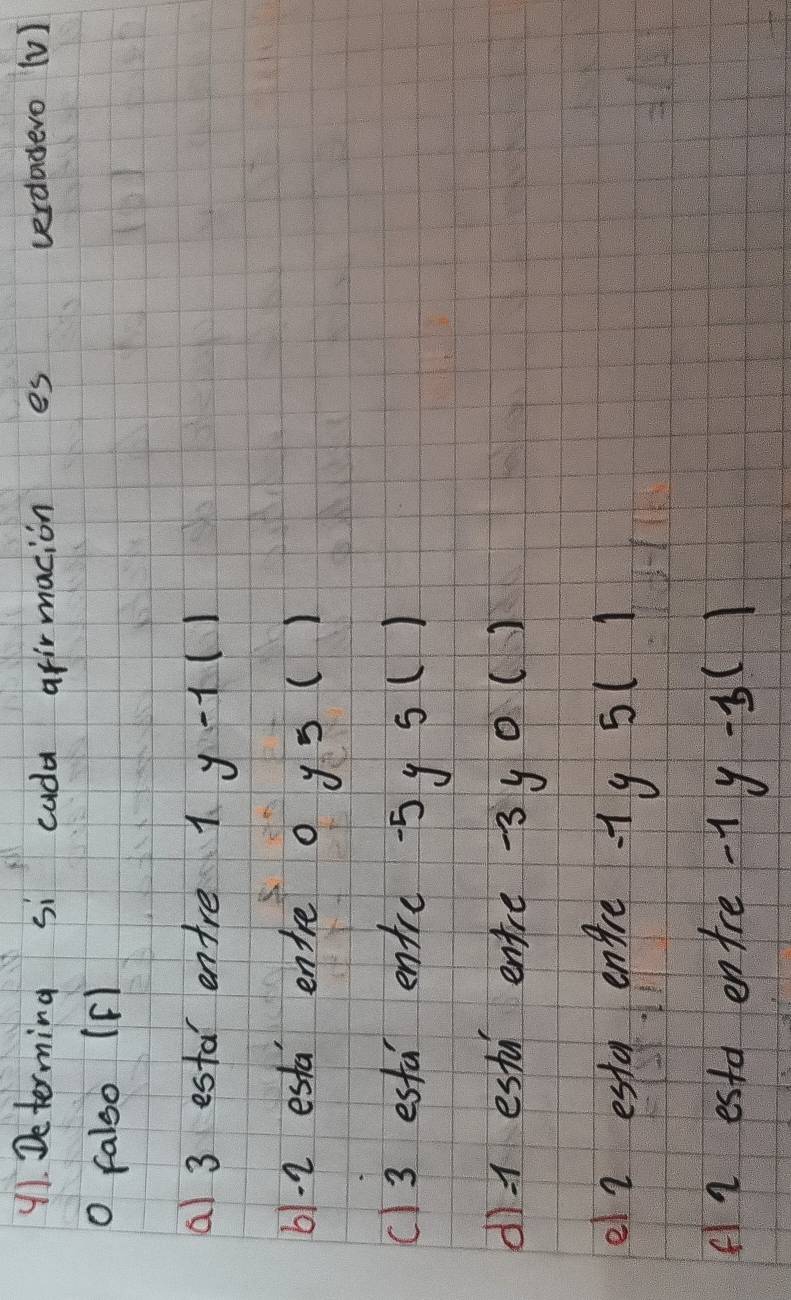 4). Determina si cada afirmación es verdadero (v)
o falso (F)
a) 3 está entre 1 y -1 ( )
b) -2 está entre 0 y 5 ( )
c) 3 está entre -5 y 5 ( )
d) -1 está entre -3 y 0 ( )
e) 2 esta entre -1 y 5 ( )
f) 2 esta entre -1 y -3 ( )